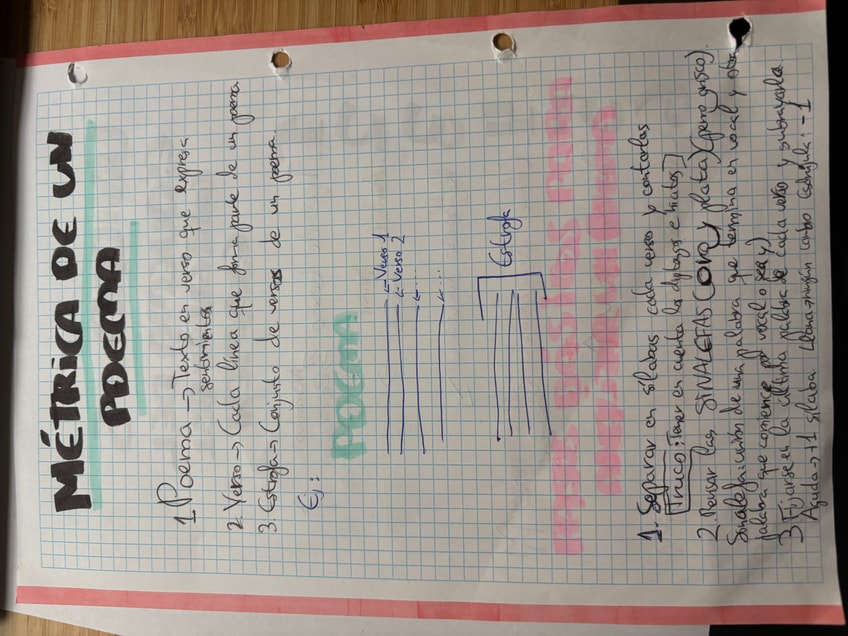 MÉTRICA DE UN
POEMA
1. Poema → Texto en verso que expresa
sentimientos
2. Verso → Cada línea que forma parte de un poema
3. Estrofa → Conjunto de versos de un poema.
Ej:
POEMA
← Verso 1
← Verso 2
← ...
← ...
Estrofa
1. Separar en sílabas cada verso y contarlas
Truco: Tener en cuenta los diptongos e hiatos
2. Pensar las SINALEFAS (oro y plata) (perro arisco).
Son la fusión de una palabra que termina en vocal y otra
palabra que comience por vocal o sea y)
3. Fijarse en la última palabra de cada verso y subrayarla
Aguda → +1 sílaba Llana → ningún cambio Esdrújula: -1